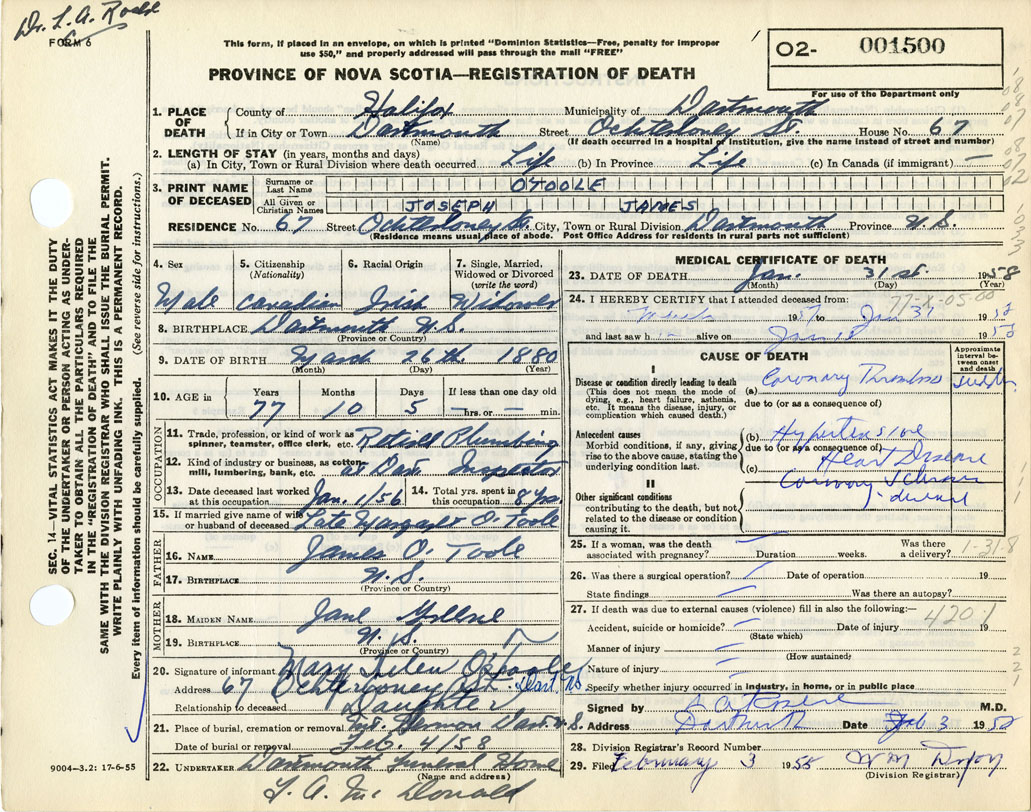 Dr. L. A. Rosere
FORM 6
This form, if placed in an envelope, on which is printed "Dominion Statistics—Free, penalty for improper
use $50," and properly addressed will pass through the mail "FREE"
PROVINCE OF NOVA SCOTIA—REGISTRATION OF DEATH
O2- 001500
For use of the Department only
SEC. 14—VITAL STATISTICS ACT MAKES IT THE DUTY
OF THE UNDERTAKER OR PERSON ACTING AS UNDER-
TAKER TO OBTAIN ALL THE PARTICULARS REQUIRED
IN THE "REGISTRATION OF DEATH" AND TO FILE THE
SAME WITH THE DIVISION REGISTRAR WHO SHALL ISSUE THE BURIAL PERMIT.
WRITE PLAINLY WITH UNFADING INK. THIS IS A PERMANENT RECORD.
Every item of information should be carefully supplied. (See reverse side for instructions.)
1. PLACE OF DEATH
County of Halifax Municipality of Dartmouth
If in City or Town Dartmouth Street Ochtoloney St. House No. 67
(Name) (If death occurred in a hospital or institution, give the name instead of street and number)
2. LENGTH OF STAY (in years, months and days)
(a) In City, Town or Rural Division where death occurred Life (b) In Province Life (c) In Canada (if immigrant) —
3. PRINT NAME OF DECEASED
Surname or Last Name OTOOLE
All Given or Christian Names JOSEPH JAMES
RESIDENCE No. 67 Street Ochtoloney St. City, Town or Rural Division Dartmouth Province N.S.
(Residence means usual place of abode. Post Office Address for residents in rural parts not sufficient)
4. Sex 5. Citizenship (Nationality) 6. Racial Origin 7. Single, Married, Widowed or Divorced (write the word)
Male Canadian Irish Widower
8. BIRTHPLACE Dartmouth N.S.
(Province or Country)
9. DATE OF BIRTH March 26th 1880
(Month) (Day) (Year)
10. AGE in Years Months Days If less than one day old
77 10 5 — hrs. or — min.
OCCUPATION
11. Trade, profession, or kind of work as spinner, teamster, office clerk, etc. Retired Plumbing
12. Kind of industry or business, as cotton-mill, lumbering, bank, etc. Inspector
13. Date deceased last worked at this occupation Jan. 1/56 14. Total yrs. spent in this occupation 8 yrs.
15. If married give name of wife or husband of deceased Late Margaret O'Toole
FATHER
16. NAME James O'Toole
17. BIRTHPLACE N.S.
(Province or Country)
MOTHER
18. MAIDEN NAME Jane
19. BIRTHPLACE N.S.
(Province or Country)
20. Signature of informant Mary Helen O'Toole
Address 67 Ochterloney St. Dart. NS
Relationship to deceased Daughter
21. Place of burial, cremation or removal Mt. Hermon Dart. N.S.
Date of burial or removal Feb. 4/58
22. UNDERTAKER Dartmouth Funeral Home
(Name and address)
L. A. Mc Donald
9004—3.2: 17-6-55
MEDICAL CERTIFICATE OF DEATH
23. DATE OF DEATH Jan. 31st 1958
(Month) (Day) (Year)
77-X-05-00
24. I HEREBY CERTIFY that I attended deceased from:
1957 to Jan 31 1958
and last saw him alive on 1958
CAUSE OF DEATH
Approximate interval between onset and death
I
Disease or condition directly leading to death
(This does not mean the mode of dying, e.g., heart failure, asthenia, etc. It means the disease, injury, or complication which caused death.)
(a) Coronary Thrombosis sudden
due to (or as a consequence of)
Antecedent causes
Morbid conditions, if any, giving rise to the above cause, stating the underlying condition last.
(b) Hypertensive
due to (or as a consequence of)
Heart Disease
(c) Coronary
II
Other significant conditions
contributing to the death, but not related to the disease or condition causing it.
25. If a woman, was the death associated with pregnancy? — Duration weeks. Was there a delivery?
1-31-8
26. Was there a surgical operation? — Date of operation 19
State findings — Was there an autopsy?
27. If death was due to external causes (violence) fill in also the following:—
420.1
Accident, suicide or homicide? — Date of injury 19
(State which)
Manner of injury —
(How sustained)
Nature of injury —
Specify whether injury occurred in industry, in home, or in public place
Signed by L A Rosere M.D.
Address Dartmouth Date Feb 3 1958
28. Division Registrar's Record Number
29. Filed February 3 1958
(Division Registrar)